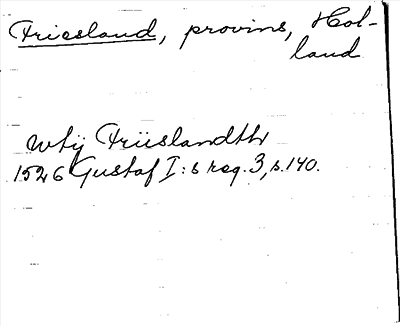 Friesland, provins, Hol-
land
wtij Friislandth
1526 Gustaf I:s reg. 3, s. 140.